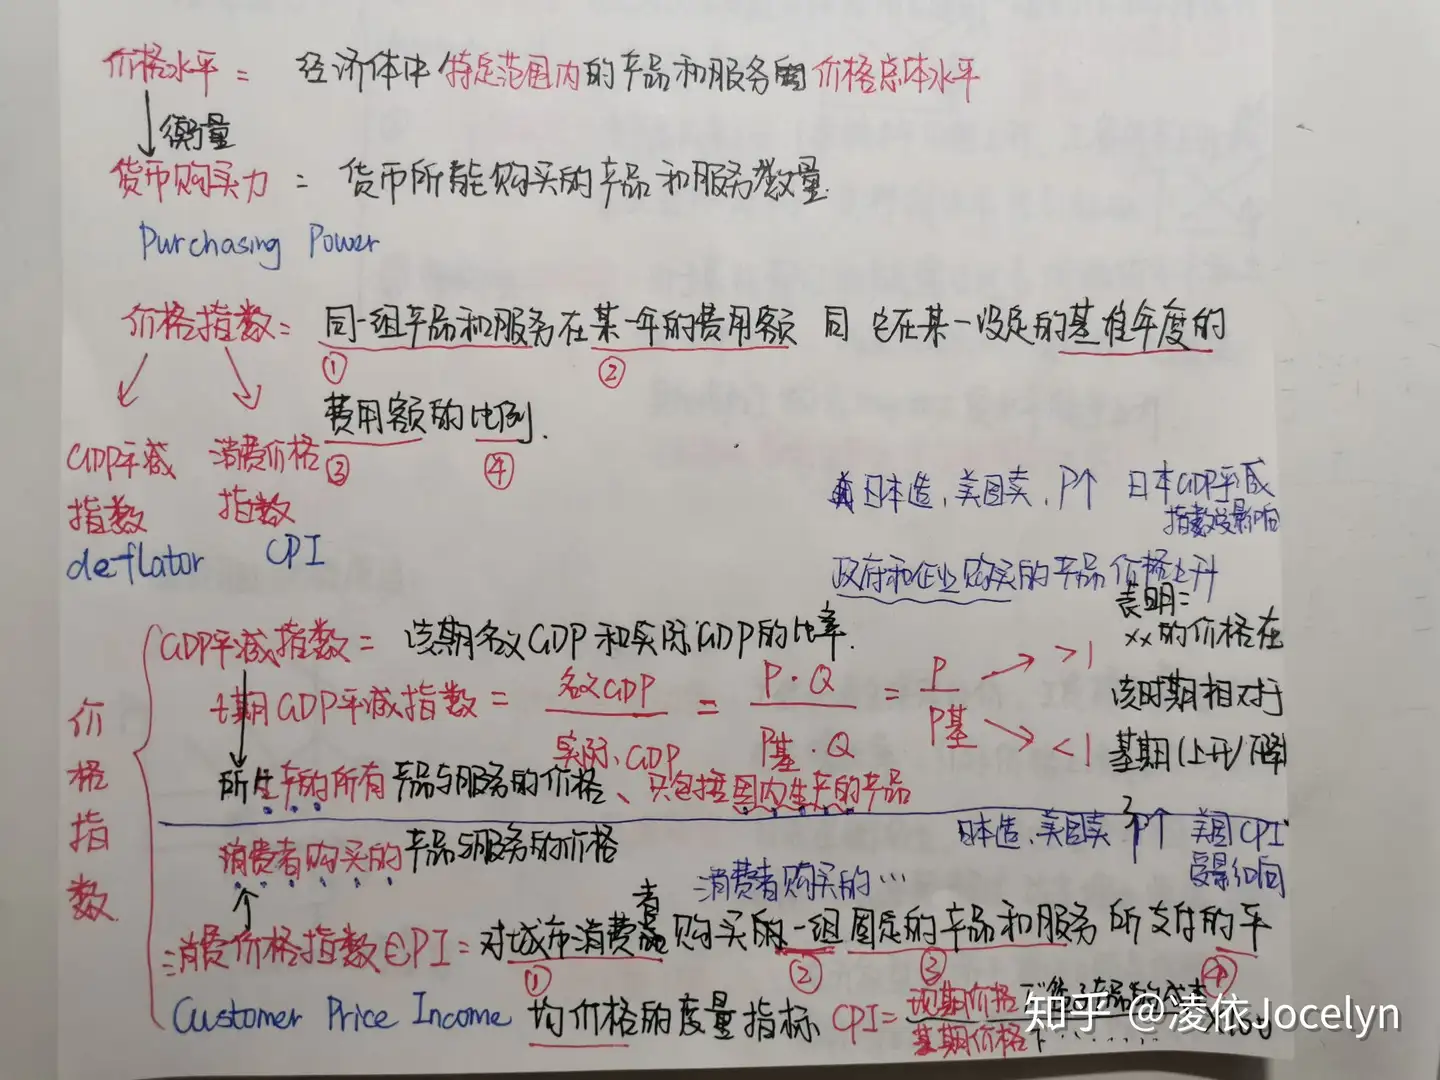 价格水平 = 经济体中特定范围内的产品和服务的价格总体水平
衡量
货币购买力 = 货币所能购买的产品和服务数量.
Purchasing Power
价格指数 = 同一组产品和服务在某一年的费用额 同 它在某一设定的基准年度的
① ②
费用额的比例.
③ ④
GDP平减指数 消费价格指数
deflator CPI
日本造,美国卖,P↑ 日本GDP平减
指数受影响
政府和企业购买的产品价格上升
价格指数
GDP平减指数 = 该期名义GDP和实际GDP的比率.
t期GDP平减指数 = 名义GDP / 实际GDP = P·Q / P基·Q = P / P基 >1 <1
表明:
xx的价格在
该时期相对于
基期(上升/下降)
所生产的所有产品与服务的价格、只包括国内生产的产品
消费者购买的产品与服务的价格
日本造,美国卖 P↑ 美国CPI
受影响
消费者购买的…
消费价格指数CPI = 对城市消费者购买的一组固定的产品和服务所支付的平
① ② ③ ④
Customer Price Income 均价格的度量指标 CPI = 现期价格 / 基期价格
知乎 @凌依Jocelyn